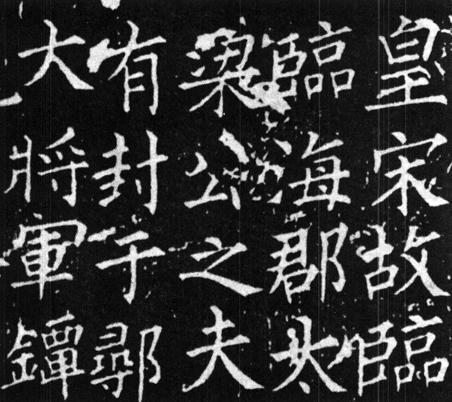 皇宋故臨
臨海郡太
梁公之夫
有封于鄩
大將軍鐔